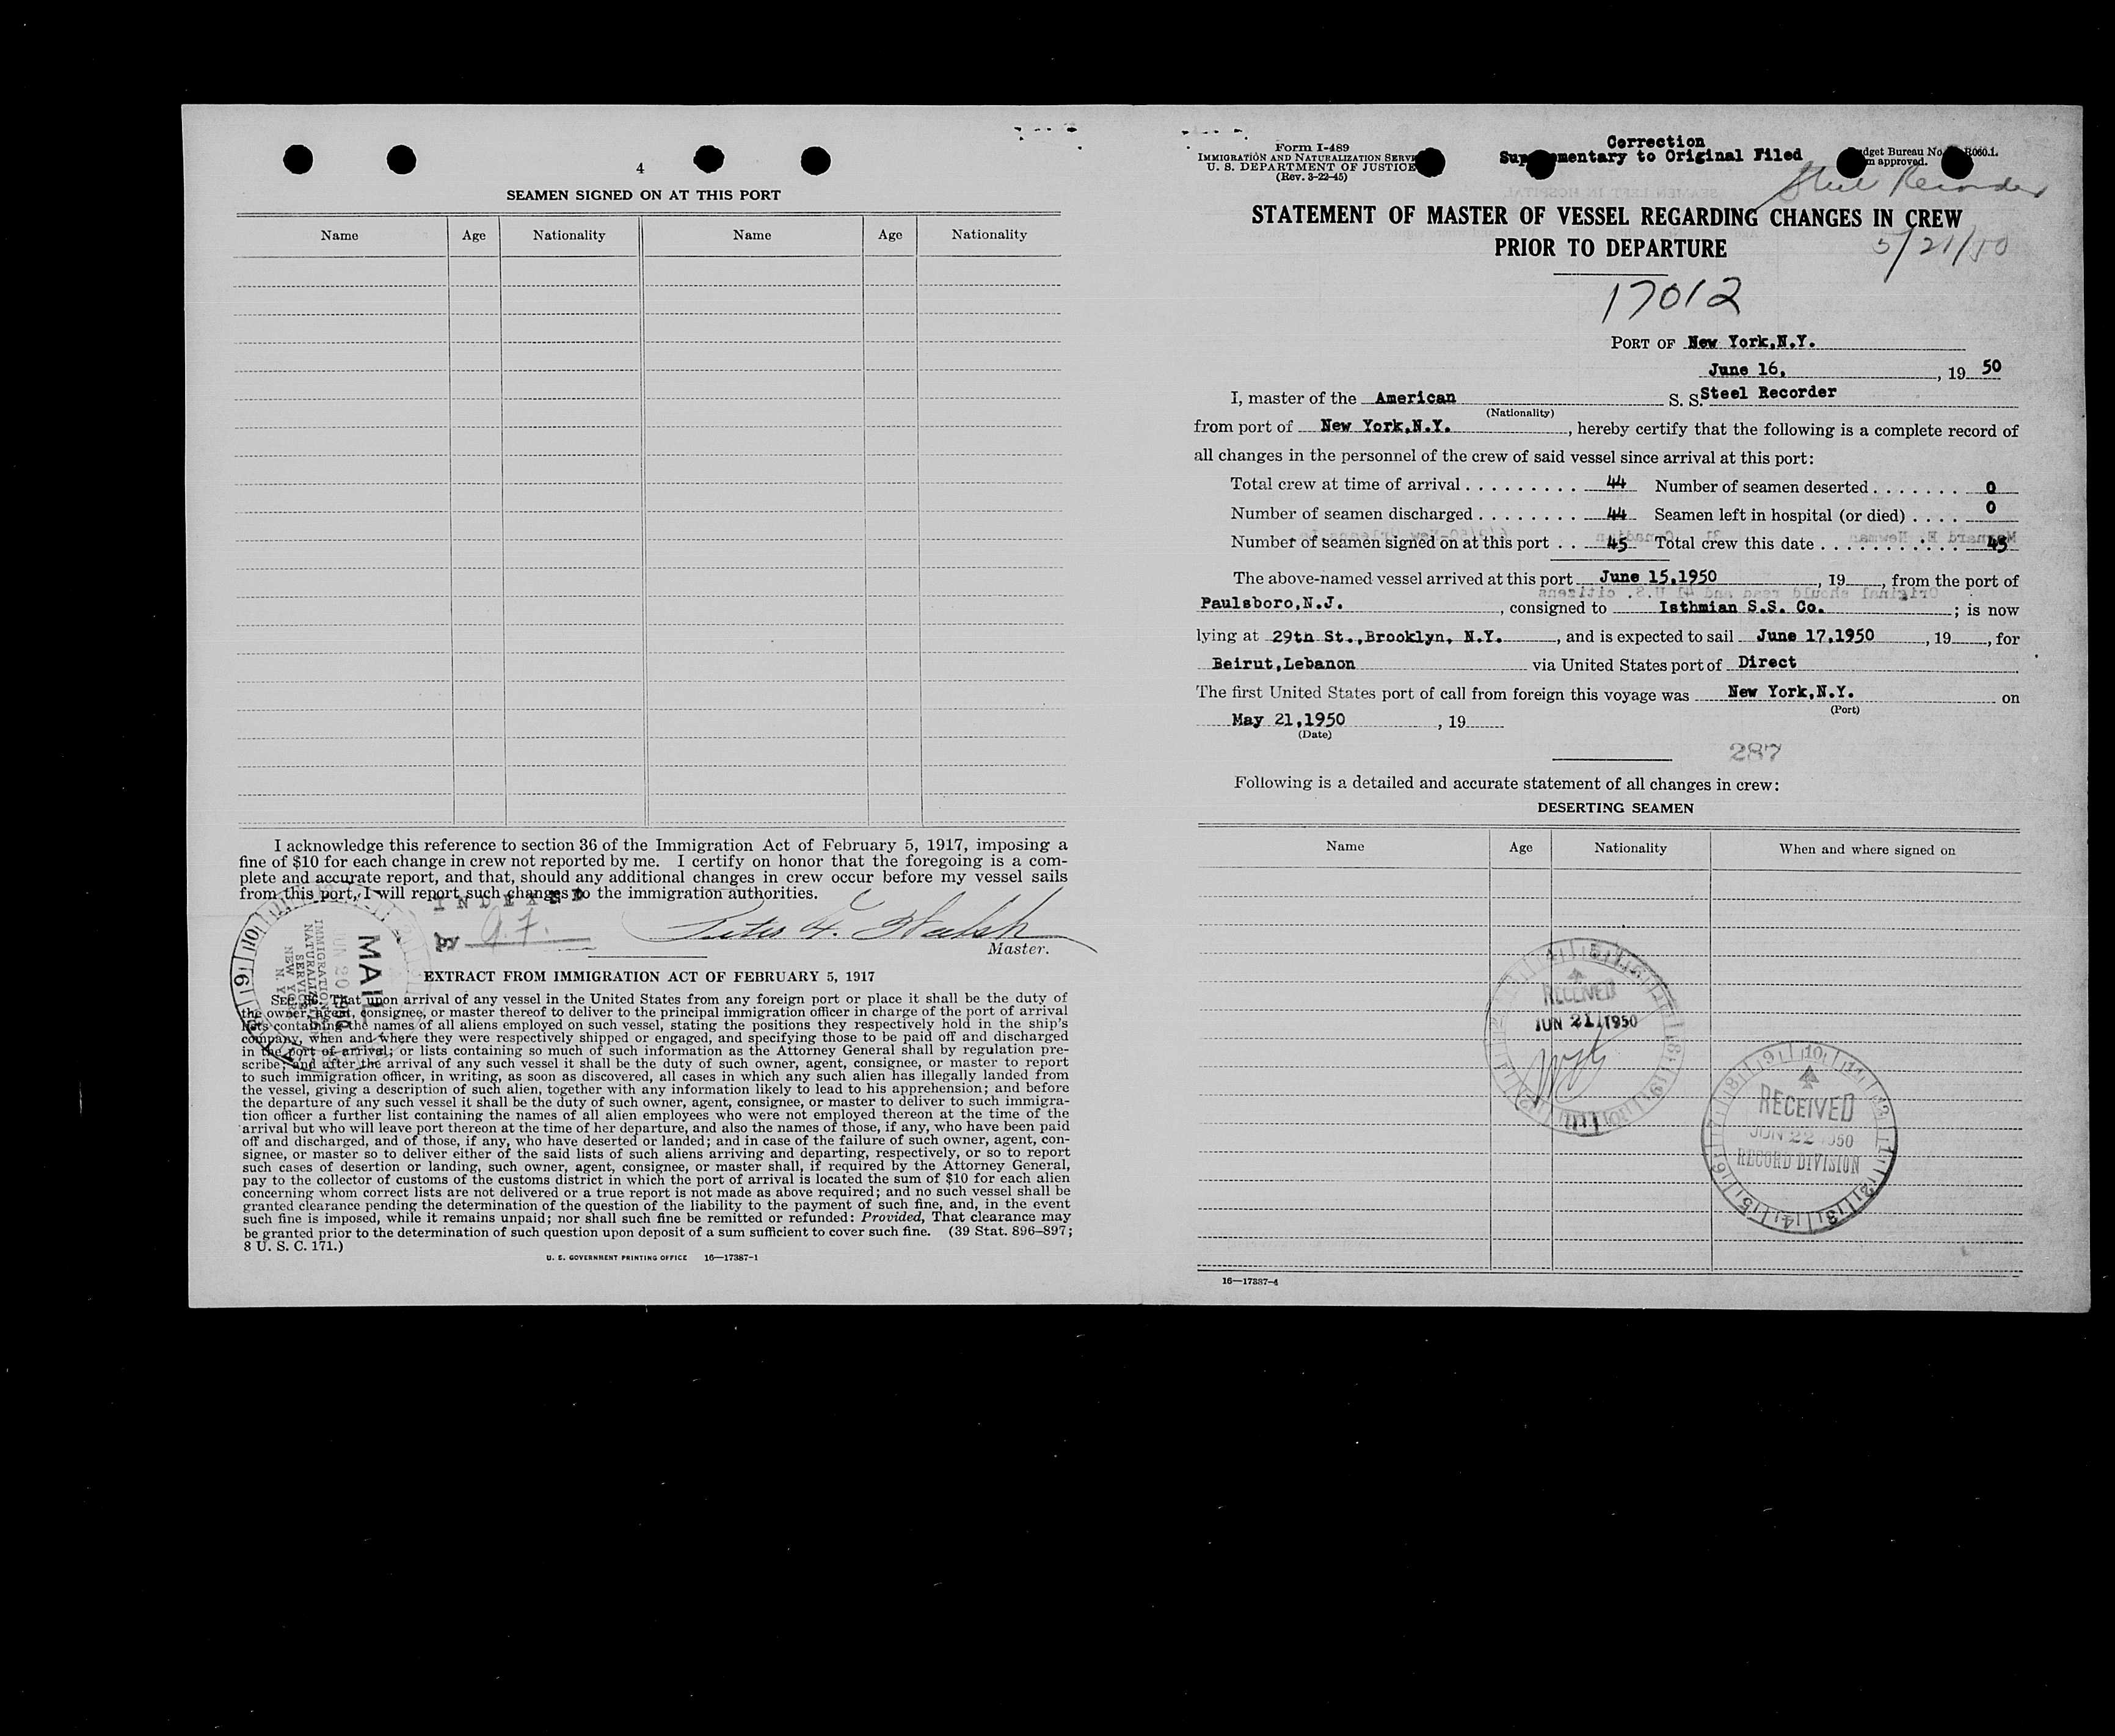 4
SEAMEN SIGNED ON AT THIS PORT
Name Age Nationality Name Age Nationality
I acknowledge this reference to section 36 of the Immigration Act of February 5, 1917, imposing a
fine of $10 for each change in crew not reported by me. I certify on honor that the foregoing is a com-
plete and accurate report, and that, should any additional changes in crew occur before my vessel sails
from this port, I will report such changes to the immigration authorities.
INDEXED
Master.
MAIL
JUN 20 1950
IMMIGRATION &
NATURALIZATION
SERVICE
NEW YORK
N. Y.
EXTRACT FROM IMMIGRATION ACT OF FEBRUARY 5, 1917
SEC. 36. That upon arrival of any vessel in the United States from any foreign port or place it shall be the duty of
the owner, agent, consignee, or master thereof to deliver to the principal immigration officer in charge of the port of arrival
lists containing the names of all aliens employed on such vessel, stating the positions they respectively hold in the ship's
company, when and where they were respectively shipped or engaged, and specifying those to be paid off and discharged
in the port of arrival; or lists containing so much of such information as the Attorney General shall by regulation pre-
scribe; and after the arrival of any such vessel it shall be the duty of such owner, agent, consignee, or master to report
to such immigration officer, in writing, as soon as discovered, all cases in which any such alien has illegally landed from
the vessel, giving a description of such alien, together with any information likely to lead to his apprehension; and before
the departure of any such vessel it shall be the duty of such owner, agent, consignee, or master to deliver to such immigra-
tion officer a further list containing the names of all alien employees who were not employed thereon at the time of the
arrival but who will leave port thereon at the time of her departure, and also the names of those, if any, who have been paid
off and discharged, and of those, if any, who have deserted or landed; and in case of the failure of such owner, agent, con-
signee, or master so to deliver either of the said lists of such aliens arriving and departing, respectively, or so to report
such cases of desertion or landing, such owner, agent, consignee, or master shall, if required by the Attorney General,
pay to the collector of customs of the customs district in which the port of arrival is located the sum of $10 for each alien
concerning whom correct lists are not delivered or a true report is not made as above required; and no such vessel shall be
granted clearance pending the determination of the question of the liability to the payment of such fine, and, in the event
such fine is imposed, while it remains unpaid; nor shall such fine be remitted or refunded: Provided, That clearance may
be granted prior to the determination of such question upon deposit of a sum sufficient to cover such fine. (39 Stat. 896–897;
8 U. S. C. 171.)
U. S. GOVERNMENT PRINTING OFFICE 16—17387-1
Form I-489
IMMIGRATION AND NATURALIZATION SERVICE
U. S. DEPARTMENT OF JUSTICE
(Rev. 3-22-45)
Correction
Supplementary to Original Filed
Budget Bureau No. R060.1.
approved.
Steel Recorder
STATEMENT OF MASTER OF VESSEL REGARDING CHANGES IN CREW
PRIOR TO DEPARTURE
5/21/50
17012
PORT OF New York,N.Y.
June 16, , 19 50
I, master of the American S. S. Steel Recorder
(Nationality)
from port of New York,N.Y. , hereby certify that the following is a complete record of
all changes in the personnel of the crew of said vessel since arrival at this port:
Total crew at time of arrival . . . . . . . . . . 44 Number of seamen deserted . . . . . . . 0
Number of seamen discharged . . . . . . . . . 44 Seamen left in hospital (or died) . . . . 0
Number of seamen signed on at this port . . . 45 Total crew this date . . . . . . . . . . . . 45
The above-named vessel arrived at this port June 15,1950 , 19 , from the port of
Paulsboro,N.J. , consigned to Isthmian S.S. Co. ; is now
lying at 29th St.,Brooklyn, N.Y. , and is expected to sail June 17,1950 , 19 , for
Beirut,Lebanon via United States port of Direct
The first United States port of call from foreign this voyage was New York,N.Y. on
(Port)
May 21,1950 , 19
(Date)
287
Following is a detailed and accurate statement of all changes in crew:
DESERTING SEAMEN
Name Age Nationality When and where signed on
RECEIVED
JUN 21 1950
RECEIVED
JUN 22 1950
RECORD DIVISION
16—17387-4